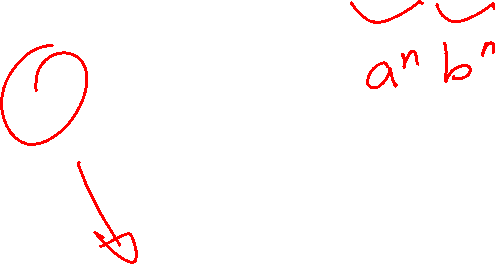 aⁿ bⁿ